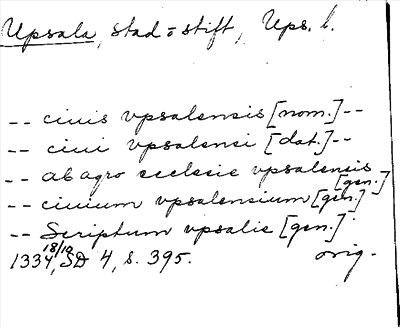 Upsala, stad o stift, Ups. l.
-- ciuis vpsalensis [nom.] --
-- ciui vpsalensi [dat.] --
-- ab agro ecclesie vpsalensis [gen.]
-- ciuium vpsalensium [gen.]
-- Scriptum vpsalie [gen.]
1334 18/10, SD 4, s. 395. orig.